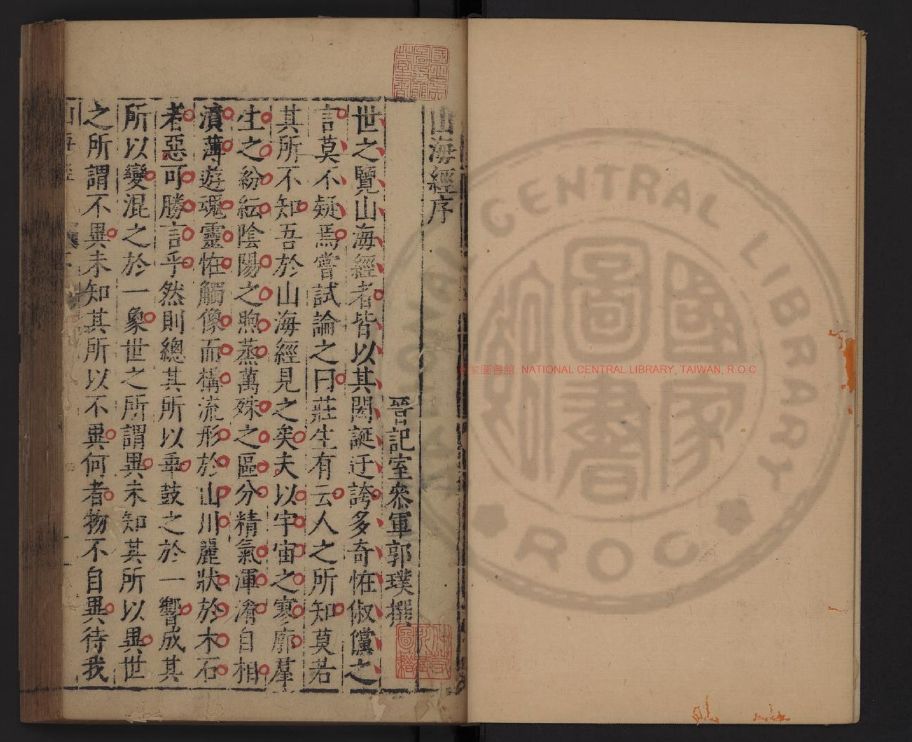 山海經序
晉記室叅軍郭璞撰
世之覽山海經者皆以其閎誕迂誇多奇怪俶儻之
言莫不疑焉嘗試論之曰莊生有云人之所知莫若
其所不知吾於山海經見之矣夫以宇宙之寥廓羣
生之紛紜陰陽之煦蒸萬殊之區分精氣渾淆自相
濆薄遊魂靈怪觸像而構流形於山川麗狀於木石
者惡可勝言乎然則總其所以乖鼓之於一響成其
所以變混之於一象世之所謂異未知其所以異世
之所謂不異未知其所以不異何者物不自異待我
山海經
國家圖書館 NATIONAL CENTRAL LIBRARY, TAIWAN, R.O.C
NATIONAL CENTRAL LIBRARY
ROC